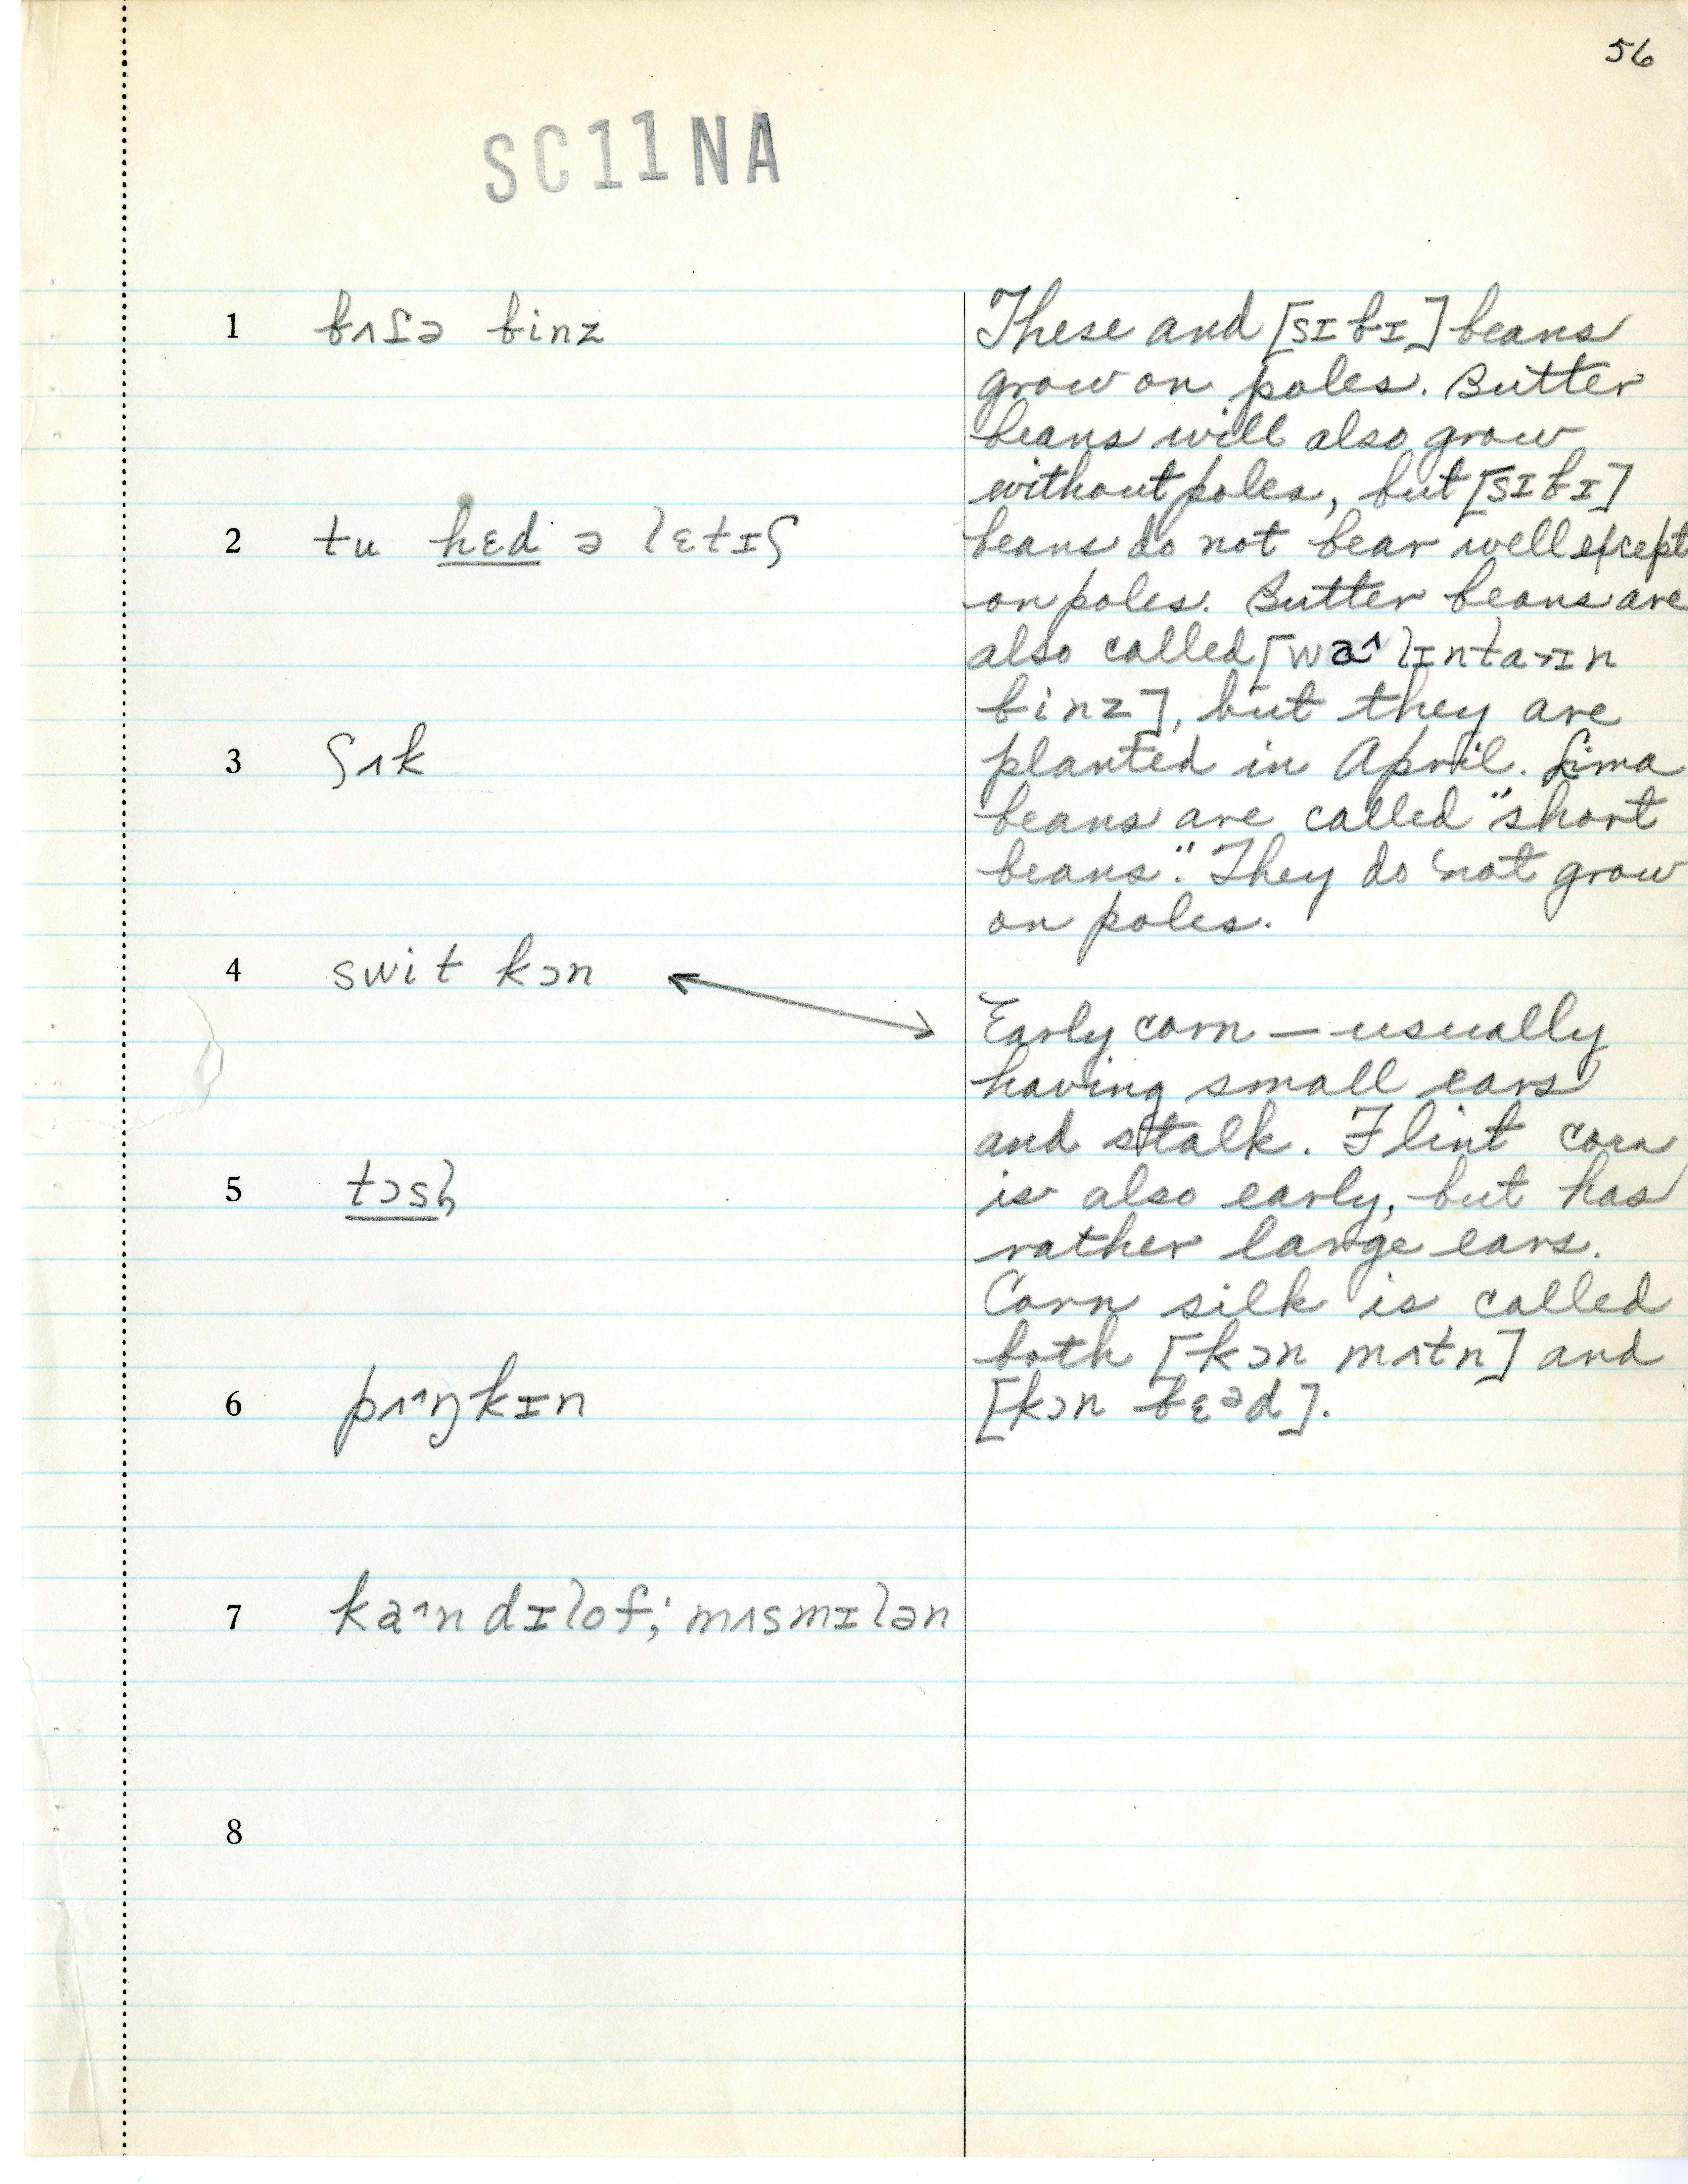 56
SC11NA
1 bʌɾə binz
2 tu hɛd ə lɛtɪʃ
3 ʃʌk
4 swit kɔn
5 tɔsl̩
6 pʌ^ŋkɪn
7 ka^ndɪlof; mʌsmɪlən
8
These and [sɪbɪ] beans
grow on poles. Butter
beans will also grow
without poles, but [sɪbɪ]
beans do not bear well except
on poles. Butter beans are
also called [wa^lɪntaɪn
binz], but they are
planted in April. Lima
beans are called "short
beans". They do not grow
on poles.
Early corn — usually
having small ears
and stalk. Flint corn
is also early, but has
rather large ears.
Corn silk is called
both [kɔn mʌtn] and
[kɔn bɛəd].